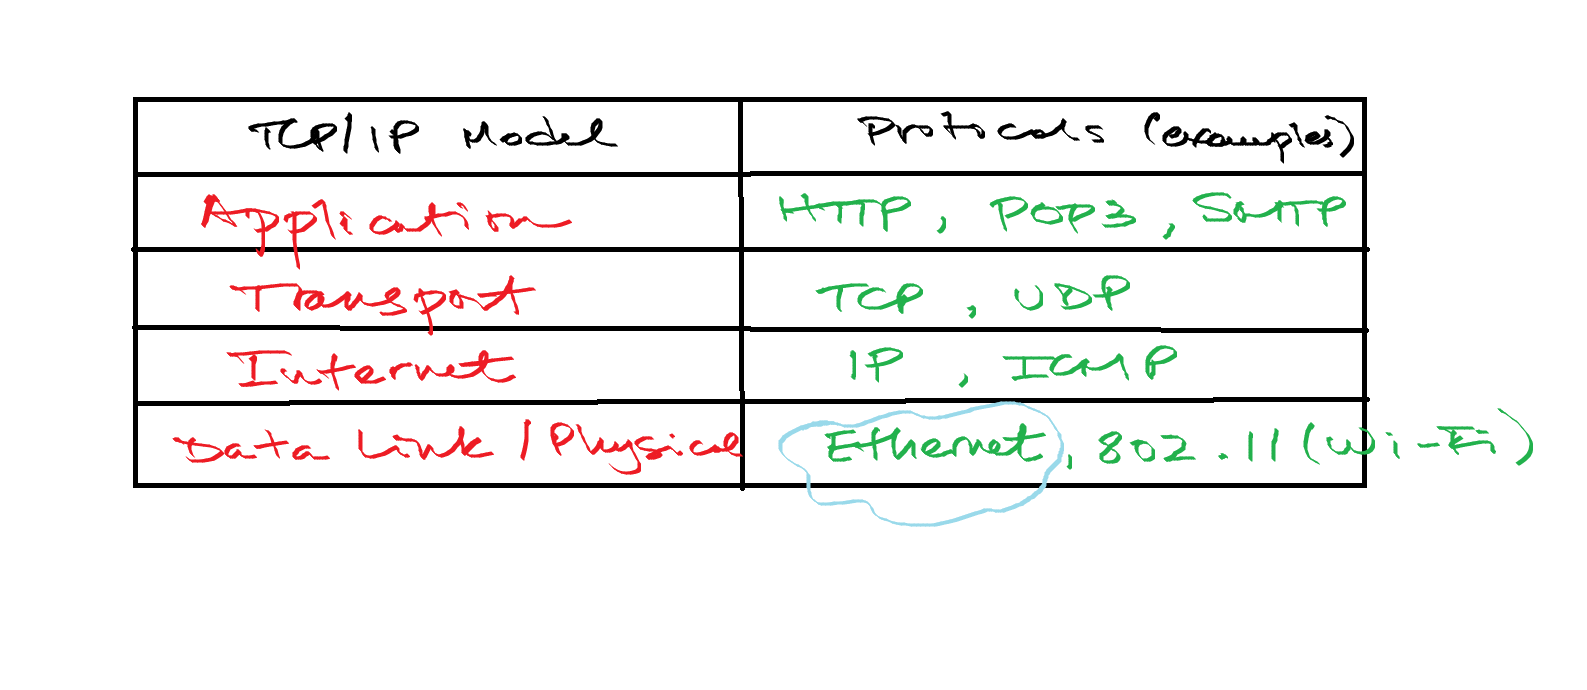 TCP/IP Model Protocols (examples)
Application HTTP, POP3, SMTP
Transport TCP, UDP
Internet IP, ICMP
Data Link / Physical Ethernet, 802.11 (Wi-Fi)